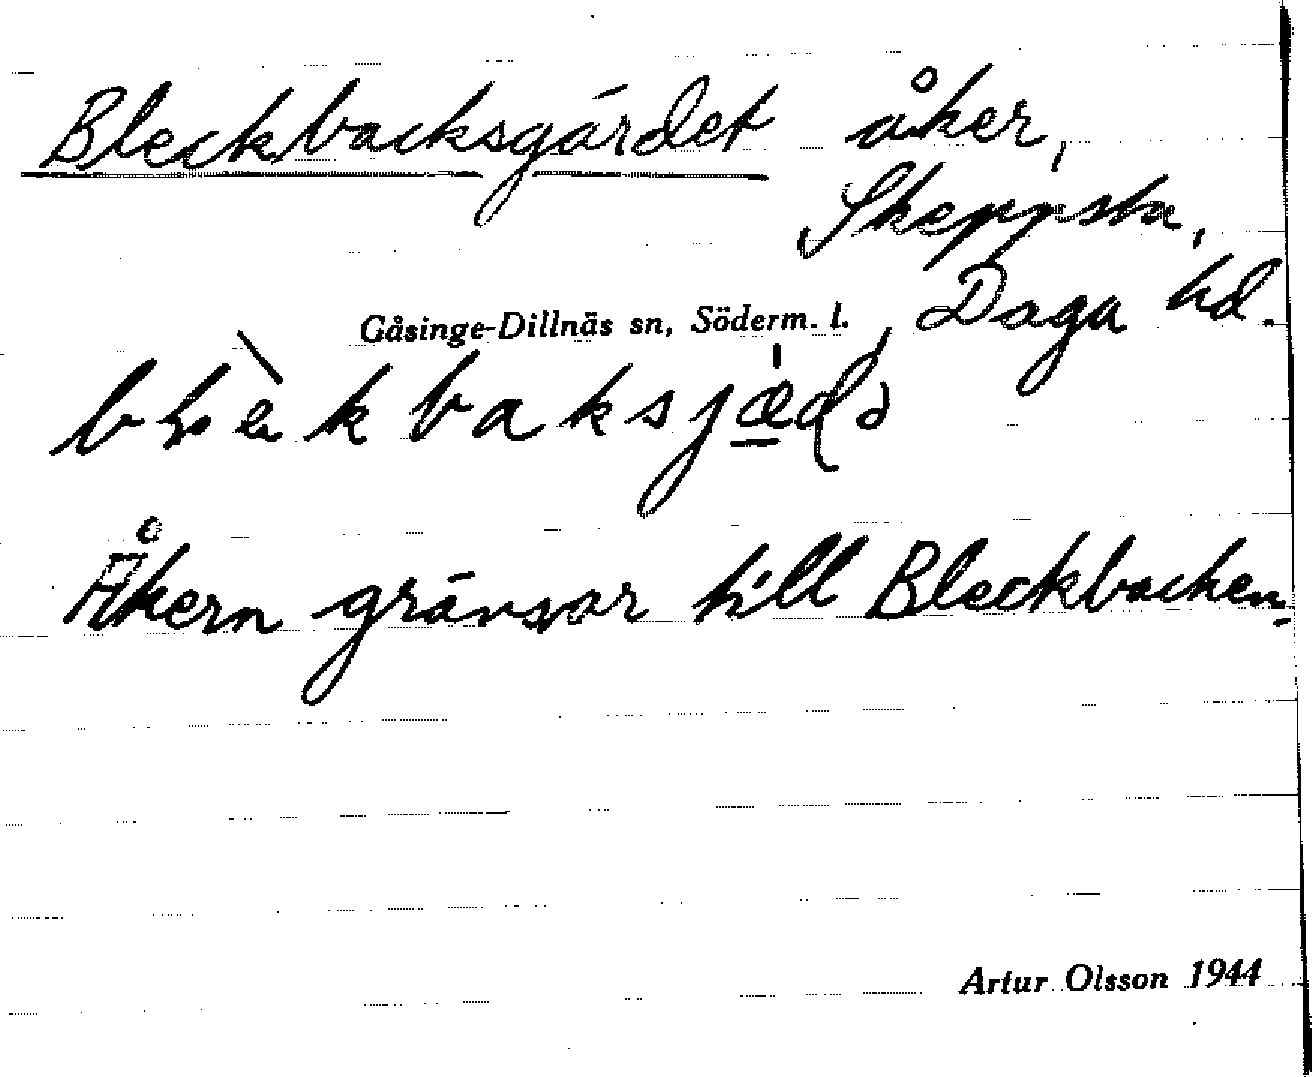 Bleckbacksgärdet åker,
Skeppsta,
Gåsinge-Dillnäs sn, Söderm. l., Daga hd.
Åkern gränsar till Bleckbacken.
Artur Olsson 1944